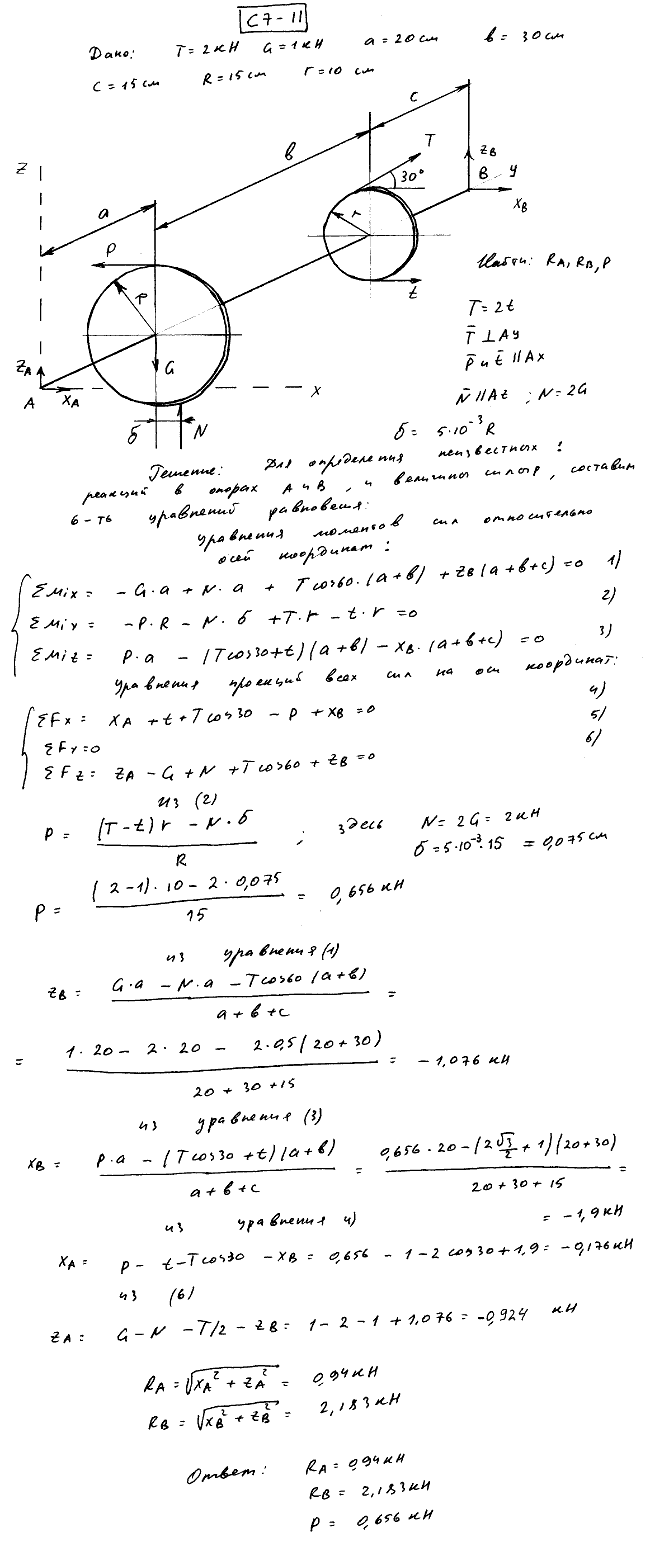 С7-11
Дано: T=2кН G=1кН a=20см в=30см
C=15см R=15см r=10 см
Z
a
в
c
T
30°
ZB
B
y
XB
P
R
r
t
G
ZA
A
XA
X
б
N
Найти: RA, RB, P
T=2t
T̄ ⊥ Ay
P̄ и t̄ || Ax
N̄ || Az ; N=2G
б = 5·10⁻³ R
Решение: Для определения неизвестных:
реакций в опорах A и B, и величины силы P, составим
6-ть уравнений равновесия:
уравнения моментов сил относительно
осей координат:
ΣMix = -G·a + N·a + Tcos60·(a+в) + ZB(a+в+c)=0 1)
ΣMiy = -P·R - N·б + T·r - t·r =0 2)
ΣMiz = P·a - (Tcos30+t)(a+в) - XB·(a+в+c) =0 3)
уравнения проекций всех сил на оси координат:
ΣFx = XA + t + Tcos30 - P + XB =0 4)
ΣFy=0 5)
ΣFz = ZA - G + N + Tcos60 + ZB =0 6)
из (2)
P = ((T-t)r - N·б)/R ; здесь N=2G=2кН
б=5·10⁻³·15 = 0,075см
P = ((2-1)·10-2·0,075)/15 = 0,656 кН
из уравнения (1)
ZB = (G·a - N·a - Tcos60(a+в))/(a+в+c) =
= (1·20 - 2·20 - 2·0,5(20+30))/(20+30+15) = -1,076 кН
из уравнения (3)
XB = (P·a - (Tcos30+t)(a+в))/(a+в+c) = (0,656·20-(2√3/2+1)(20+30))/(20+30+15) =
= -1,9кН
из уравнения 4)
XA = P - t-Tcos30 - XB = 0,656 - 1-2cos30+1,9 = -0,176кН
из (6)
ZA = G - N - T/2 - ZB = 1-2-1+1,076=-0,924 кН
RA = √(XA² + ZA²) = 0,94кН
RB = √(XB² + ZB²) = 2,183кН
Ответ: RA = 0,94кН
RB = 2,183кН
P = 0,656 кН